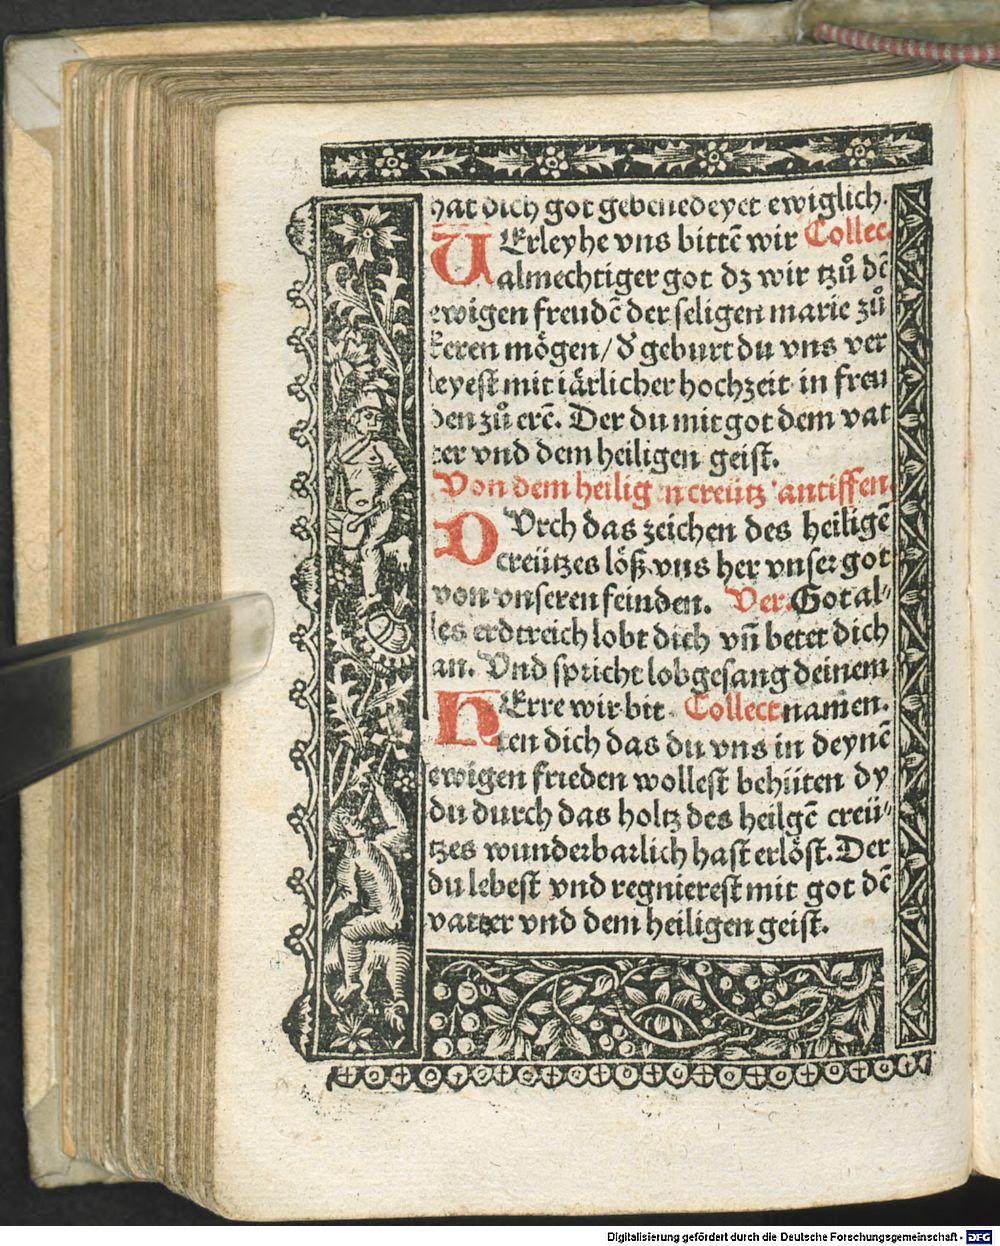 hat dich got gebenedeyet ewiglich.
VErleyhe vns bittē wir Collec.
almechtiger got dz wir tzů dē
ewigen freudē der seligen marie zů
keren mögen/ d̕ geburt du vns ver
leyest mit iärlicher hochzeit in freu
den zů erē. Der du mit got dem vat
ter vnd dem heiligen geist.
Von dem heiligen creütz antiffen.
DVrch das zeichen des heiligē
creützes löß vns her vnser got
von vnseren feinden. Ver. Got al⸗
les erdtreich lobt dich vn̄ betet dich
an. Vnd spricht lobgesang deinem
HErre wir bit Collect namen.
ten dich das du vns in deynē
ewigen frieden wollest behüten dy
du durch das holtz des heilgē creü⸗
tzes wunderbarlich hast erlöst. Der
du lebest vnd regnierest mit got dē
vatter vnd dem heiligen geist.
Digitalisierung gefördert durch die Deutsche Forschungsgemeinschaft - DFG